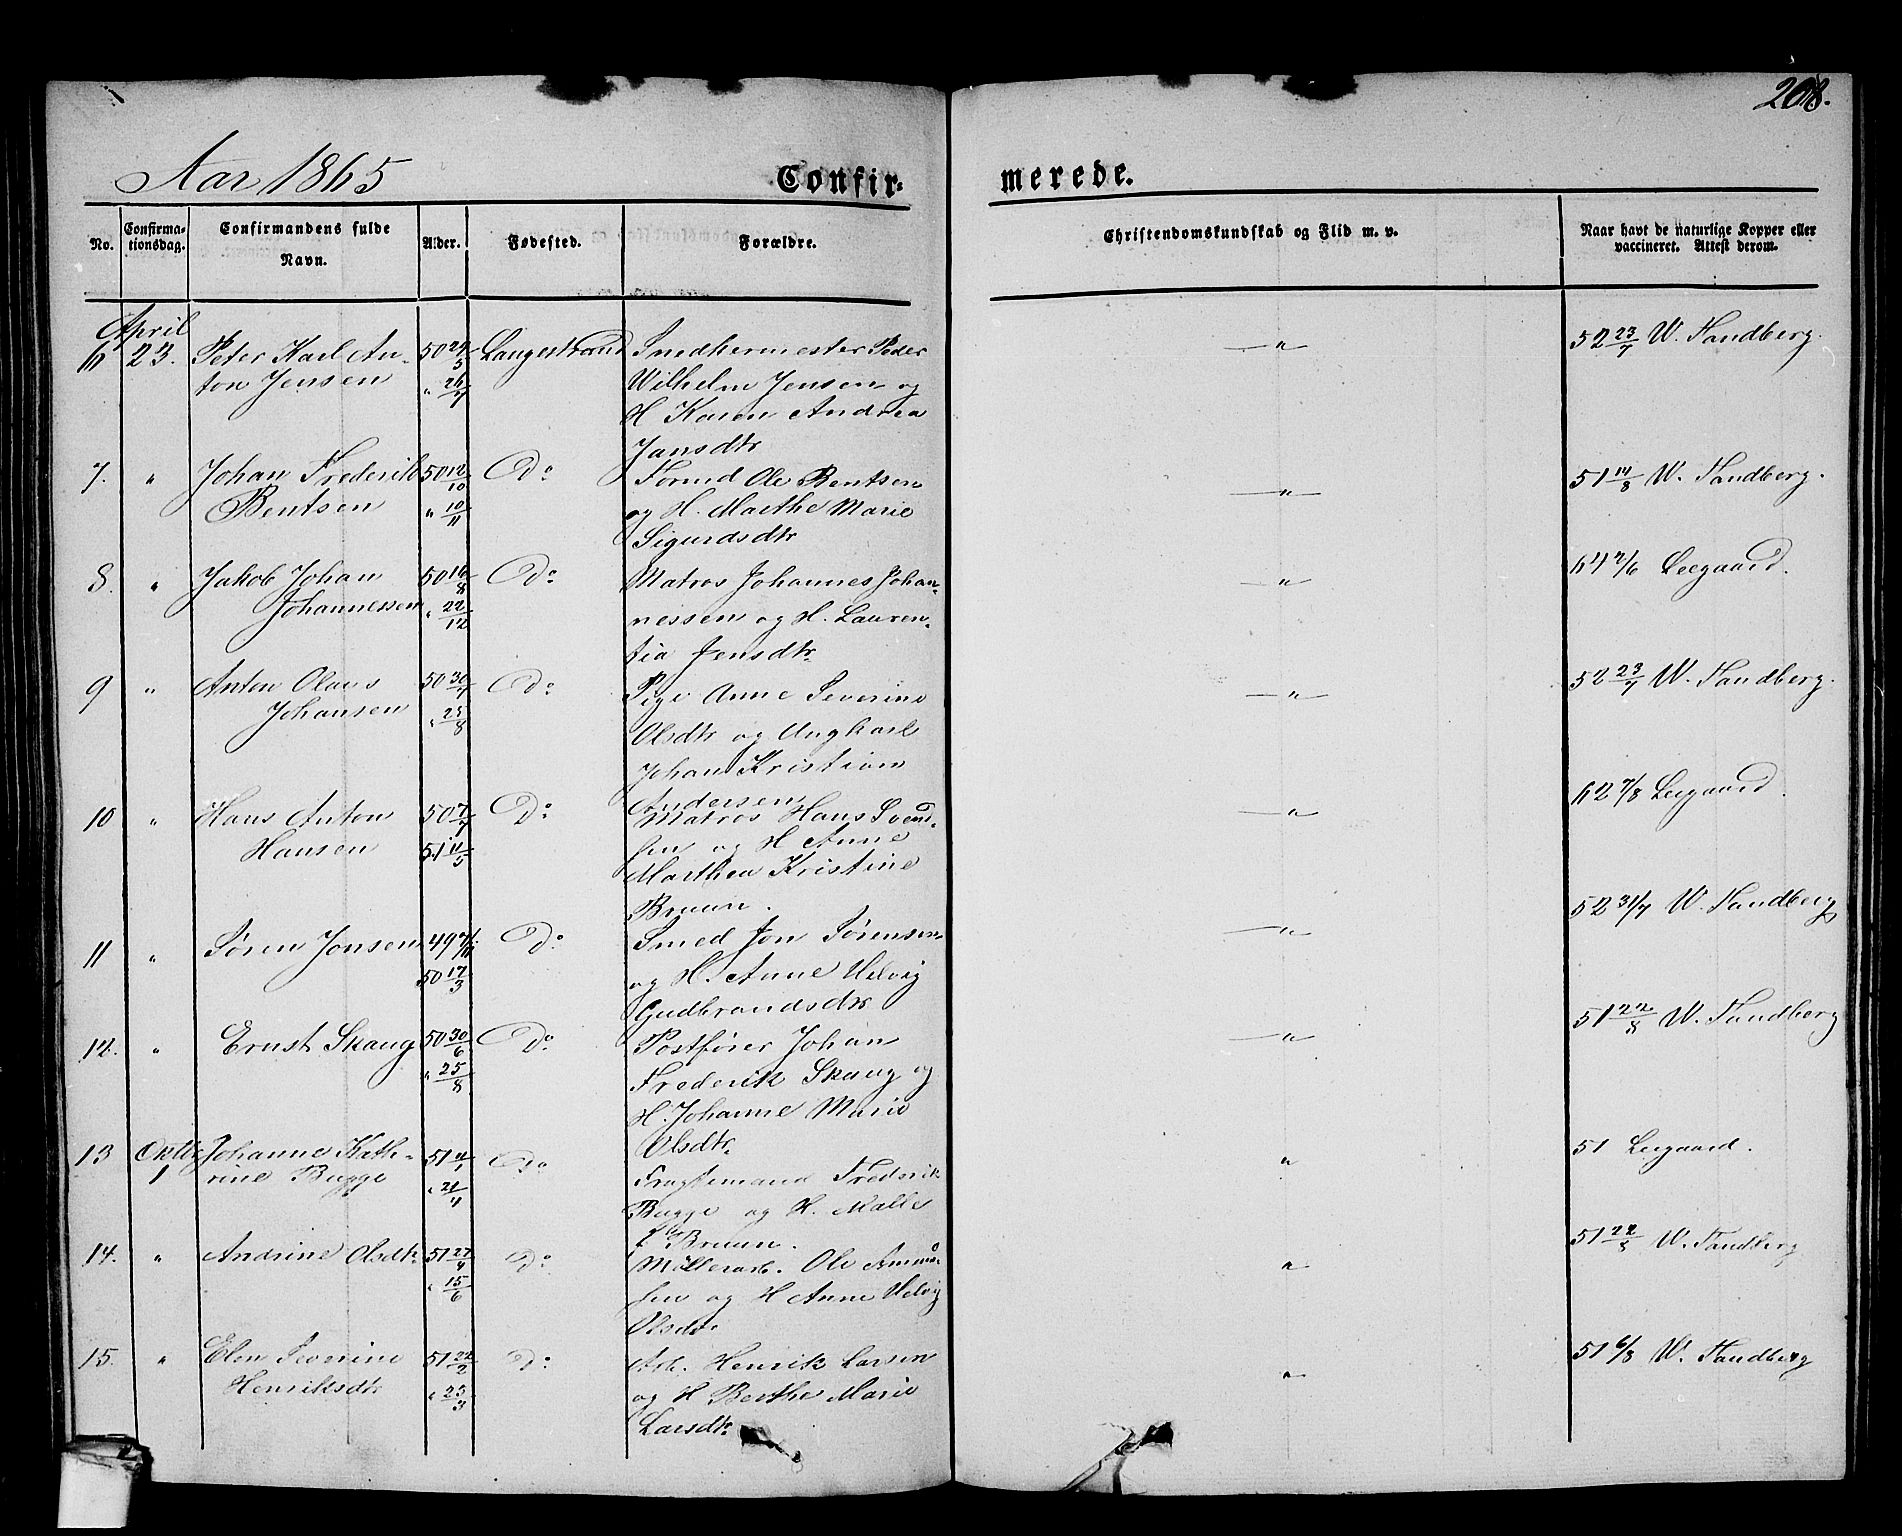 208.
Aar 1865
Confir-
merede.
No.
Confirma-
tionsdag.
Confirmandens fulde
Navn.
Alder.
Fødested.
Forældre.
Christendomskundskab og Flid m. v.
Naar havt de naturlige Kopper eller
vaccineret. Attest derom.
April
6 23. Peter Karl An- 50 Langestrand Snedkermester Peder " 52 23/7 W. Sandberg.
ton Jensen " 26/7 Wilhelm Jensen og
H Karen Andrea
Jansdtr
7. " Johan Frederik 50 12/10 Do Formd Ole Bentsen " 51 14/8 W. Sandberg.
Bentsen " 10/11 og H. Marthe Marie
Sigurdsdtr
8. " Jakob Johan 50 16/8 Do Matros Johannes Johan- " 64 2/6 Leegaard.
Johannessen " 22/12 nessen og H. Lauren-
tia Jensdtr.
9 " Anton Olaus 50 30/7 Do Pige Anne Severine " 52 23/7 W. Sandberg.
Johansen " 25/8 Olsdtr og Ungkarl
Johan Kristian
Andersen
10 " Hans Anton 50 7/7 Do Matros Hans Svend- " 62 7/8 Leegaard.
Hansen 51 11/5 sen og H Anne
Marthea Kristine
Bruun.
11 " Søren Jonsen 49 Do Smed Jon Sørensen " 52 31/7 W. Sandberg
50 17/3 og H. Anne Helvig
Gudbrandsdtr
12. " Ernst Skaug 50 30/6 Do Postfører Johan " 51 22/8 W. Sandberg
" 25/8 Frederik Skaug og
H. Johanne Marie
Olsdtr.
13 Oktbr Johanne Kath- 51 4/1 Do Fragtemand Frederik " 51 Leegaard.
1 rine Bugge " 21/4 Bugge og H. Malle
f. Bruun.
14. " Andrine Olsdtr 51 27/4 Do Møllerarb. Ole Amund- " 51 22/8 W. Sandberg
" 15/6 sen og H Anne Helvig
Olsdtr
15. " Elen Severine 51 22/2 Do Arb. Henrik Larsen " 51 6/8 W. Sandberg
Henriksdtr " 23/3 og H Berthe Marie
Larsdtr.